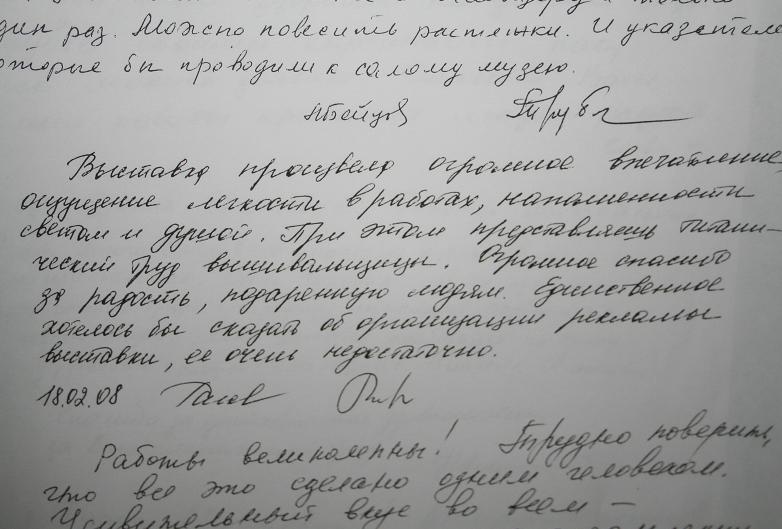 один раз. Можно повесить растяжки. И указатели
которые бы проводили к самому музею.
Выставка произвела огромное впечатление,
ощущение легкости в работах, наполненности
светом и душой. При этом представляешь титани-
ческий труд вышивальщицы. Огромное спасибо
за радость, подаренную людям. Единственное
хотелось бы сказать об организации рекламы
выставки, ее очень недостаточно.
18.02.08
Работы великолепны! Трудно поверить,
что все это сделано одним человеком.
Удивительный вкус во всем –